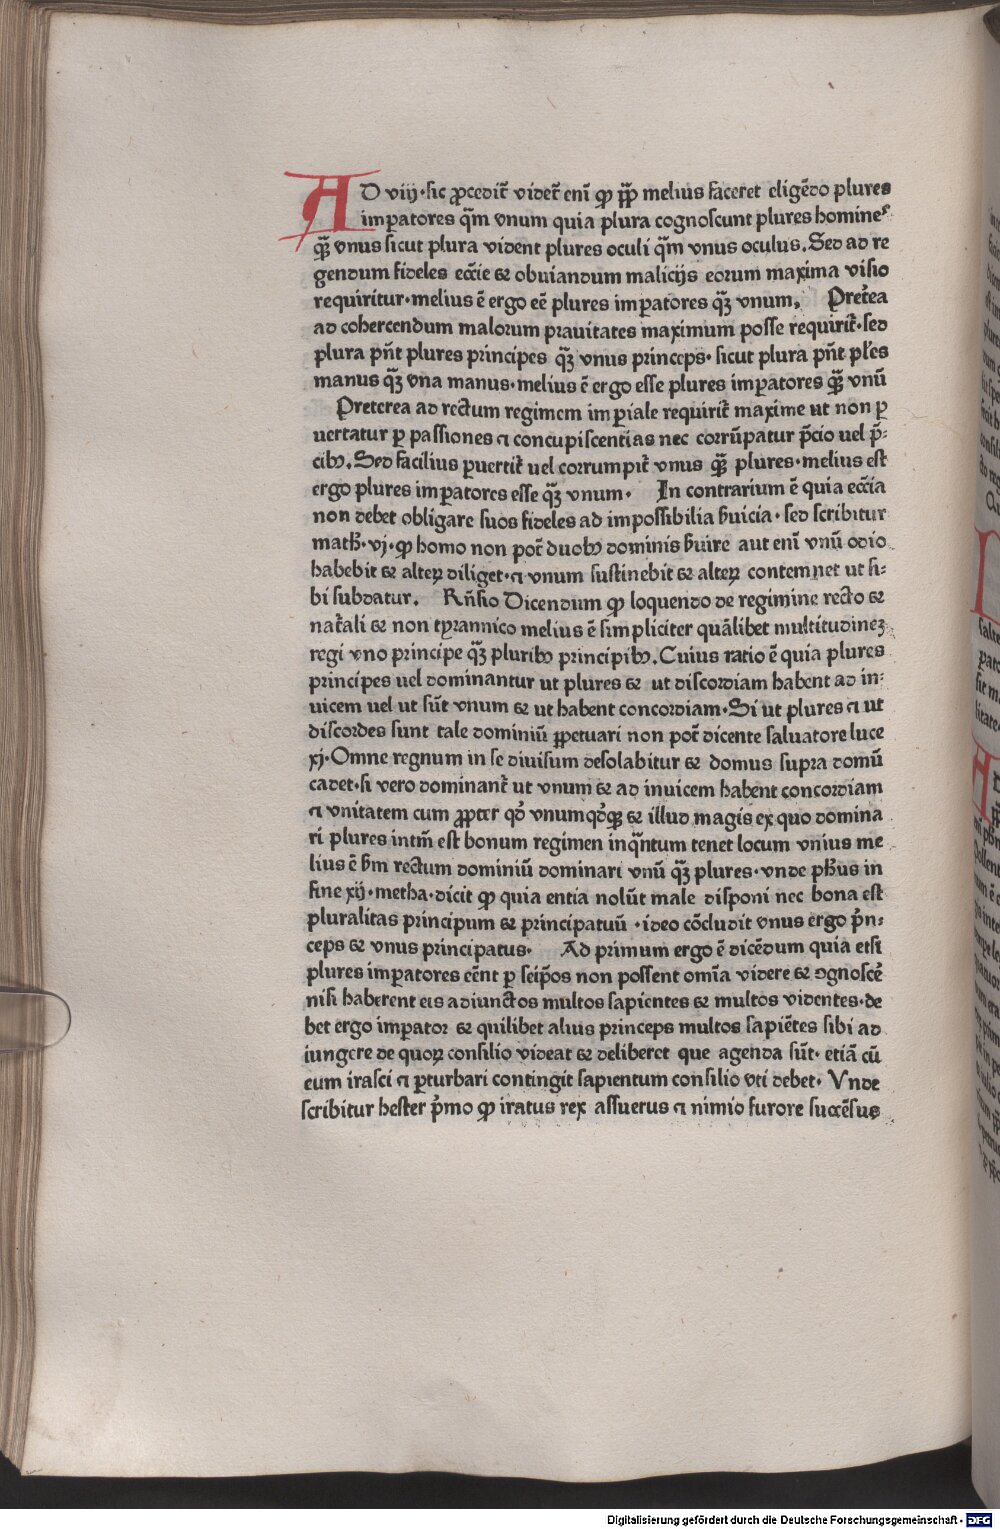 AD viij·sic ꝓcedit̄ videt̄ eni̅ ꝙ ꝓp̄ melius faceret eligēdo plures
imꝑatores q̄m vnum quia plura cognoscunt plures homines
qȝ̄ vnus sicut plura vident plures oculi q̄m vnus oculus. Sed ad re
gendum fideles ecc̄ie ⁊ obuiandum malicijs eorum maxima visio
requiritur·melius ē ergo eē plures imꝑatores qȝ̄ vnum. Pret̄ea
ad cohercendum malorum prauitates maximum posse requirit̄·sed
plura pn̄t plures principes qȝ̄ vnus princeps· sicut plura pn̄t pl̄es
manus qȝ̄ vna manus·melius ē ergo esse plures imꝑatores qȝ̄ vnū
Preterea ad rectum regimem imꝑiale requirit̄ maxime ut non ꝑ
uertatur ꝑ passiones ⁊ concupiscentias nec corrūpatur p̄cio uel p̄-
cibꝰ. Sed facilius ꝑuertit̄ uel corrumpit̄ vnus qȝ̄ plures·melius est
ergo plures imꝑatores esse qȝ̄ vnum· In contrarium ē quia ecc̄ia
non debet obligare suos fideles ad impossibilia s̄uicia· sed scribitur
math̄·vj·ꝙ homo non pot̄ duobꝰ dominis s̄uire aut eni̅ vnū odio
habebit ⁊ alteꝝ diliget·⁊ vnum sustinebit ⁊ alteꝝ contemnet ut si-
bi subdatur. Rn̄sio Dicendum ꝙ loquendo de regimine recto ⁊
nat̄ali ⁊ non tyrannico melius ē simpliciter quālibet multitudineȝ
regi vno principe qȝ̄ pluribꝰ principibꝰ. Cuius ratio ē quia plures
principes uel dominantur ut plures ⁊ ut discordiam habent ad in-
uicem uel ut sūt vnum ⁊ ut habent concordiam·Si ut plures ⁊ ut
discordes sunt tale dominiū ꝑpetuari non pot̄ dicente saluatore luce
xj·Omne regnum in se diuisum desolabitur ⁊ domus supra domū
cadet·si vero dominant̄ ut vnum ⁊ ad inuicem habent concordiam
⁊ vnitatem cum ꝓpter qd̓ vnumqd̓qȝ ⁊ illud magis ex quo domina
ri plures intm̄ est bonum regimen inq̄ntum tenet locum vnius me
lius ē s̄m rectum dominiū dominari vnū qȝ̄ plures·vnde ph̄us in
fine xij·metha·dicit ꝙ quia entia nolūt male disponi nec bona est
pluralitas principum ⁊ principatuū ·ideo cōcludit vnus ergo p̓n-
ceps ⁊ vnus principatus· Ad primum ergo ē dicēdum quia etsi
plures imꝑatores eēnt ꝑ seip̄os non possent om̄ia videre ⁊ ꝯgnoscē
nisi haberent eis adiunctos multos sapientes ⁊ multos videntes·de
bet ergo imꝑator ⁊ quilibet alius princeps multos sapiētes sibi ad
iungere de quoꝝ consilio videat ⁊ deliberet que agenda sūt· etiā cū
eum irasci ⁊ ꝑturbari contingit sapientum consilio vti debet· Vnde
scribitur hester p̓mo ꝙ iratus rex assuerus ⁊ nimio furore succēsus
Digitalisierung gefördert durch die Deutsche Forschungsgemeinschaft - DFG